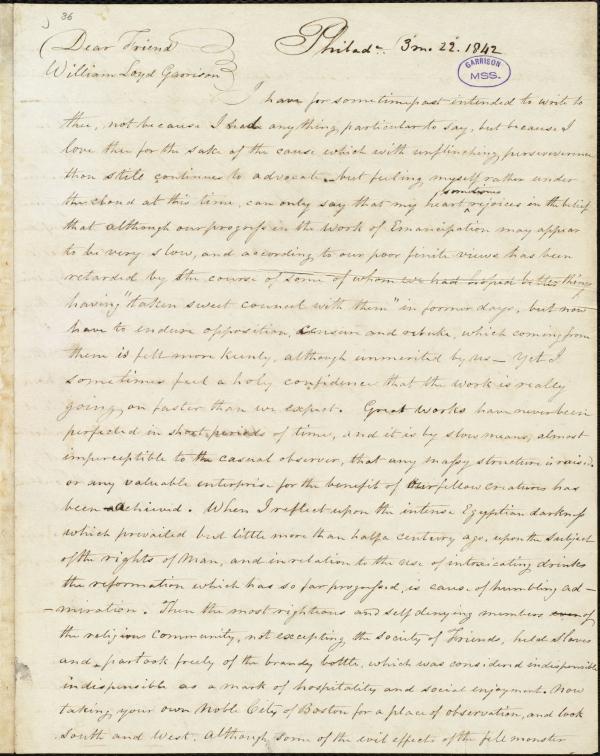 36
Dear Friend
Philada. 3 mo. 22. 1842
William Loyd Garrison
GARRISON
MSS.
I have for sometime past intended to write to
thee, not because I had any thing particular to say, but because I
love thee for the sake of the cause which with unflinching perseverance
thou still continues to advocate - but feeling myself rather under
the cloud at this time, can only say that my heart sometimes rejoices in the belief
that although our progress in the work of Emancipation may appear
to be very slow, and according to our poor finite views has been
retarded by the course of some of whom we had hoped better things
having "taken sweet council with them" in former days, but now
have to endure opposition, censure and rebuke, which coming from
them is felt more keenly, although unmerited by us - Yet I
sometimes feel a holy confidence that the work is really
going on faster than we expect. Great works have never been
perfected in short periods of time, and it is by slow means, almost
imperceptible to the casual observer, that any massy structure is raised.
or any valuable enterprise for the benefit of our fellow creatures has
been achieved. When I reflect upon the intense Egyptian darkness
which prevailed but little more than half a century ago, upon the subject
of the rights of Man, and in relation to the use of intoxicating drinks
the reformation which has so far progressed, is cause of humbling ad-
-miration. Then the most righteous and self denying members even of
the religious Community, not excepting the society of Friends, held slaves
and partook freely of the brandy bottle, which was considered indispensible
indispensible as a mark of hospitality and social enjoyment. Now
taking your own Noble City of Boston for a place of observation, and look
South and West. Although some of the evil effects of the fell monster